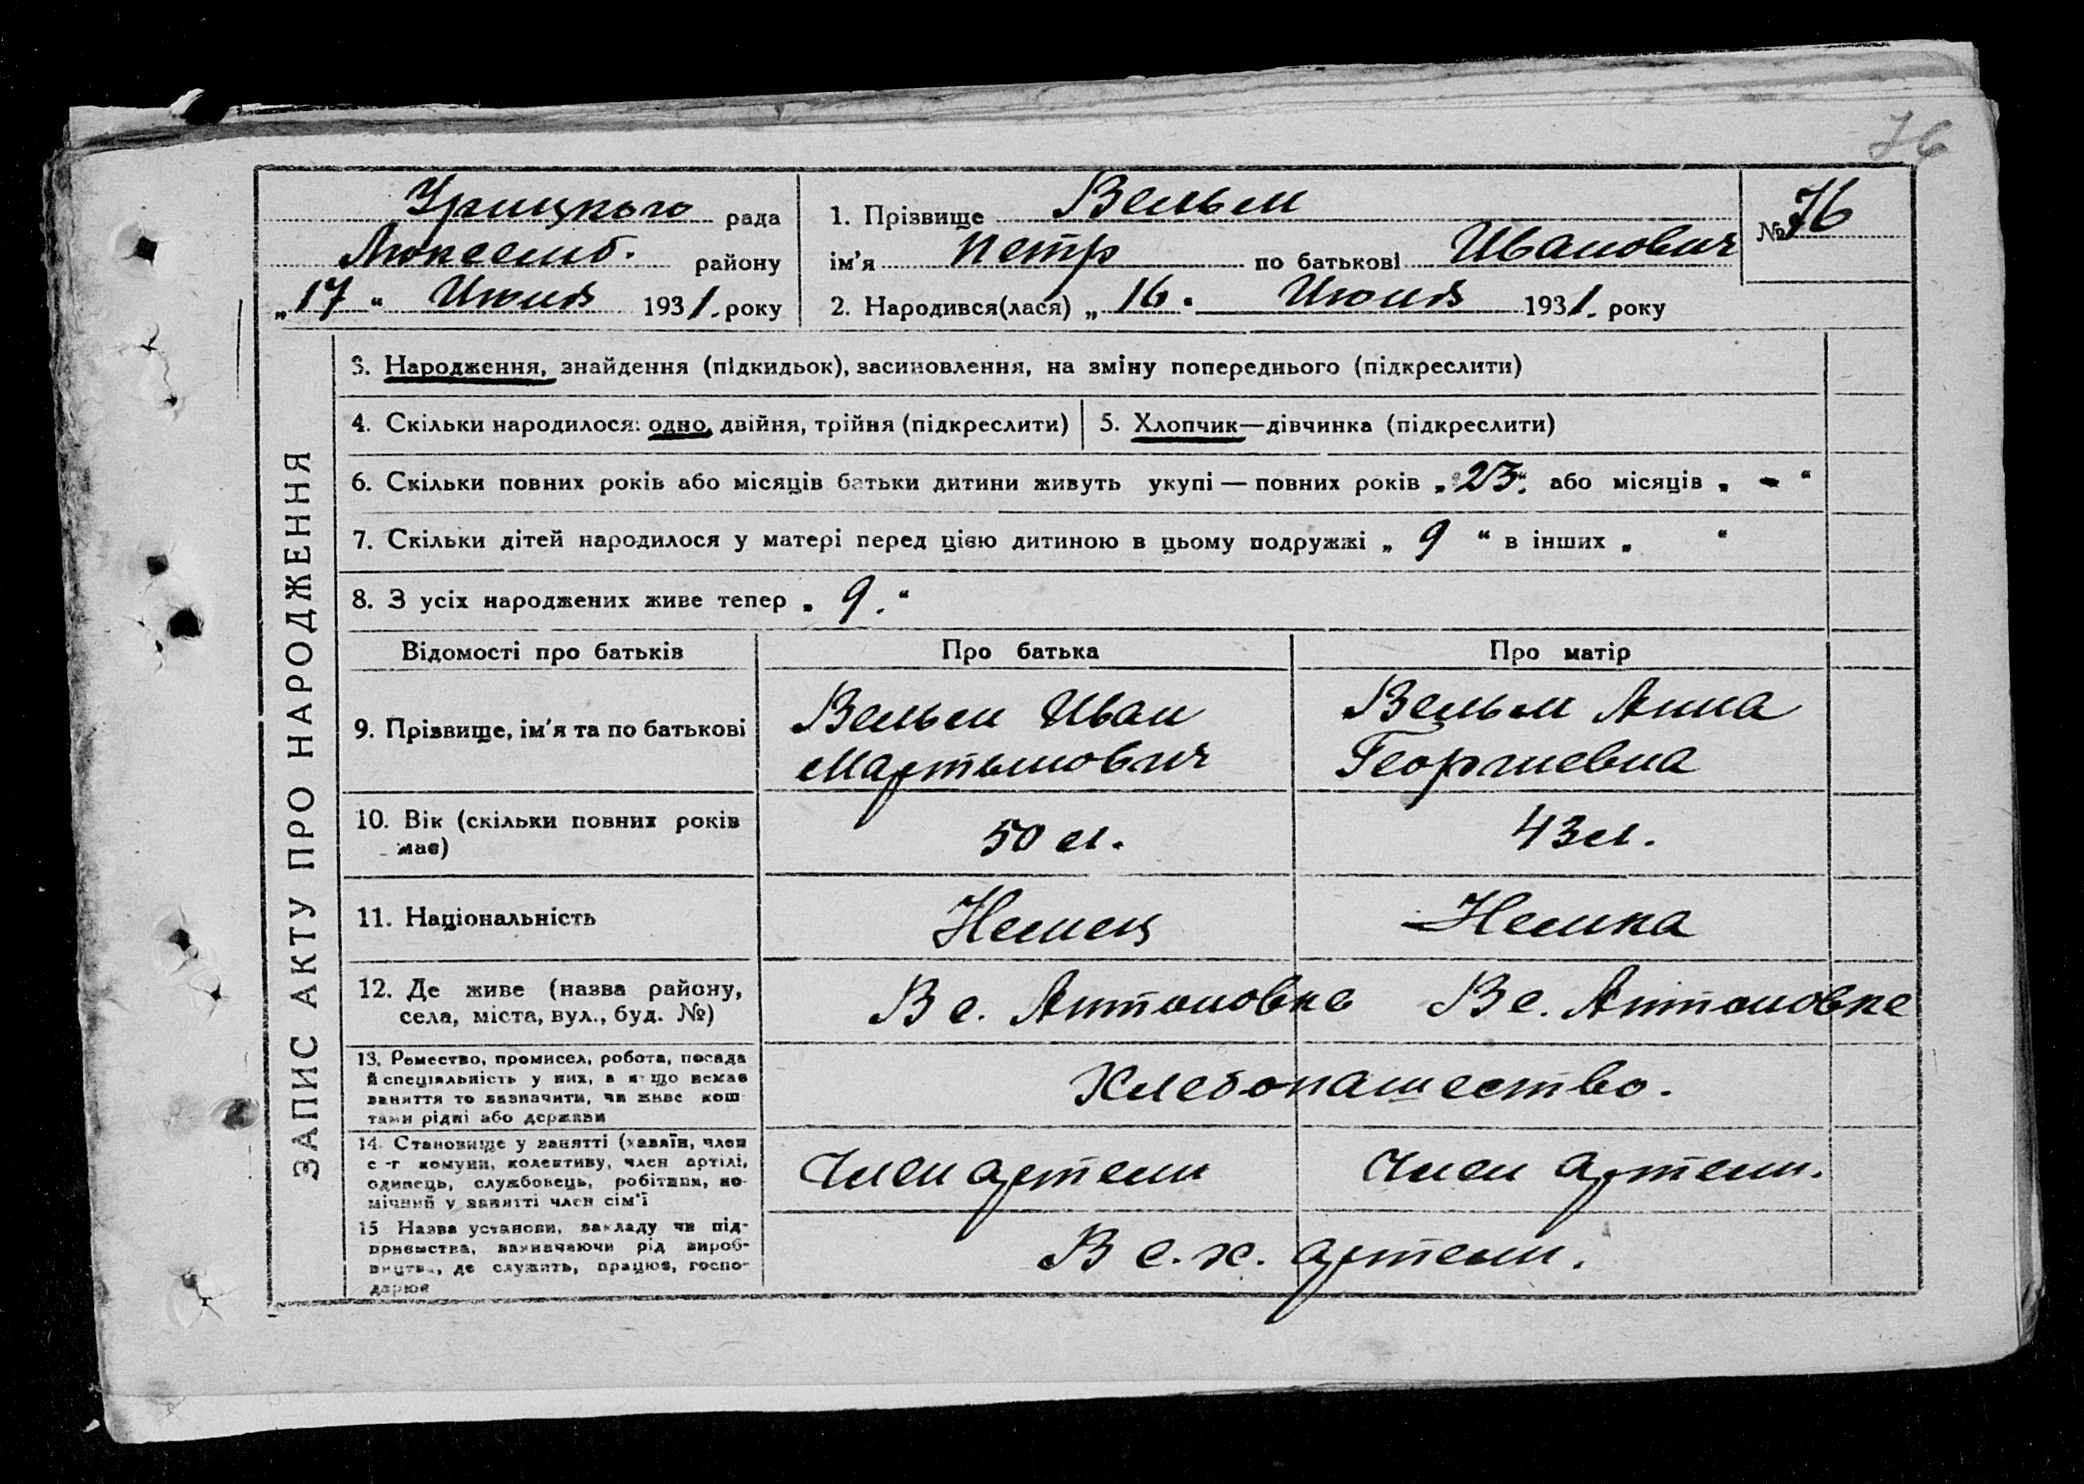 76
Урицкого рада
Люксемб. району
„17“ Июля 1931. року
1. Прізвище Вельм
ім'я Петр по батькові Иванович
№ 76
2. Народився(лася) „16“ Июля 1931. року
ЗАПИС АКТУ ПРО НАРОДЖЕННЯ
3. Народження, знайдення (підкидьок), засиновлення, на зміну попереднього (підкреслити)
4. Скільки народилося: одно, двійня, трійня (підкреслити)
5. Хлопчик—дівчинка (підкреслити)
6. Скільки повних років або місяців батьки дитини живуть укупі — повних років „23“. або місяців „ - “
7. Скільки дітей народилося у матері перед цією дитиною в цьому подружжі „ 9 “ в інших „ “
8. З усіх народжених живе тепер „ 9. “
Відомості про батьків
Про батька
Про матір
9. Прізвище, ім'я та по батькові
Вельм Иван
Мартынович
Вельм Анна
Георгиевна
10. Вік (скільки повних років
має)
50 л.
43 л.
11. Національність
Немец
Немка
12. Де живе (назва району,
села, міста, вул., буд. №)
В с. Антоновке
В с. Антоновке
13. Ремество, промисел, робота, посада
й спеціяльність у них, а якщо немає
заняття то зазначити, чи живе кош-
тами рідні або держави
Хлебопашество.
14. Становище у занятті (хазяїн, член
с-г комуни, колективу, член артілі,
одинець, службовець, робітник, по-
мічний у занятті член сім'ї
Член артели
Член артели.
15 Назва установи, закладу чи під-
приємства, зазначаючи рід вироб-
ництва, де служить, працює, госпо-
дарює
В с.х. артели.